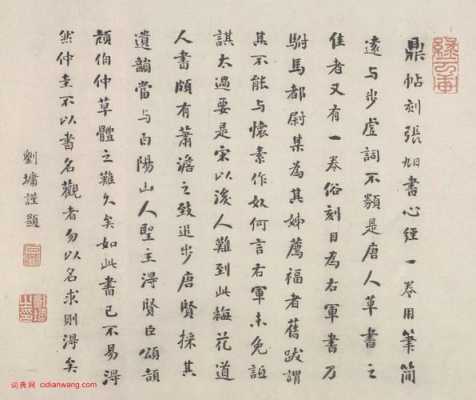 鼎帖刻張旭書心經一卷用筆簡
遠与步虛詞不類是唐人草書之
佳者又有一卷俗刻目為右軍書乃
駙馬都尉某為其姊薦福者舊跋謂
其不能与懷素作奴何言右軍未免詆
諆太過要是宋以後人難到此梅花道
人書頗有蕭澹之致追步唐賢採其
遺韻當与白陽山人聖主得賢臣頌頡
頏伯仲草體之難久矣如此書已不易得
然仲圭不以書名觀者勿以名求則得矣
劉墉謹題
词典网 cidianwang.com